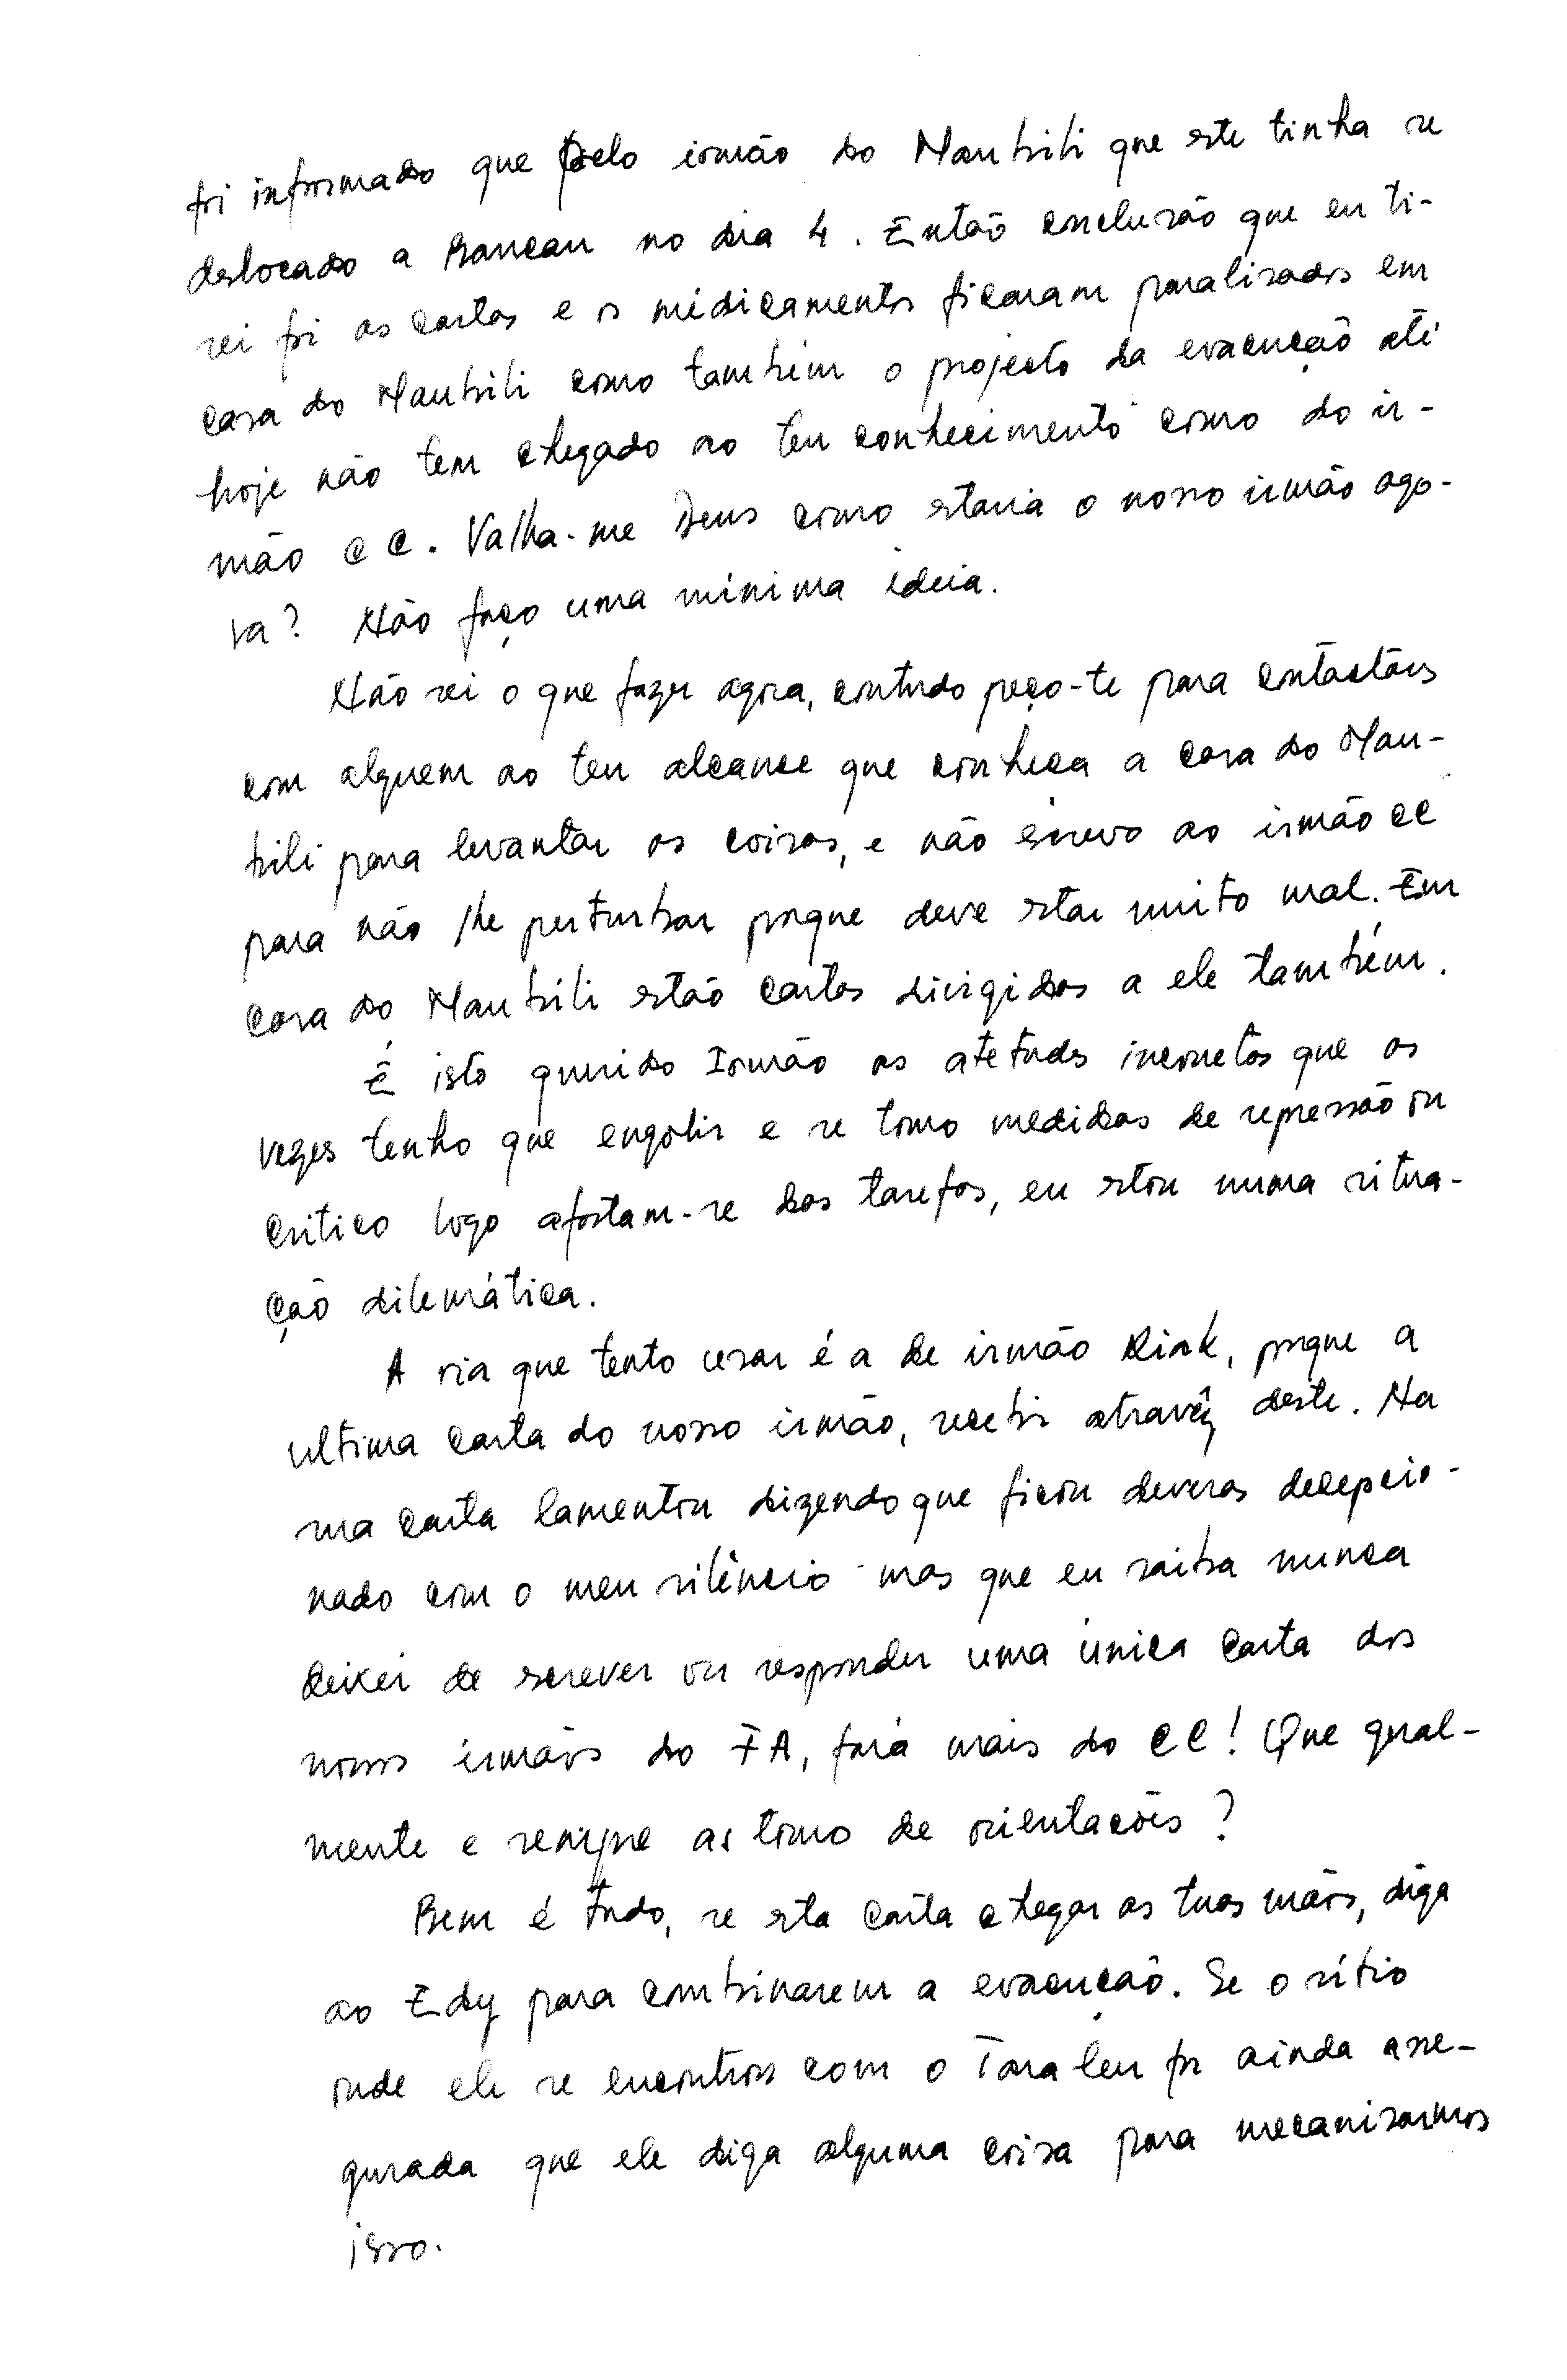 foi informado que pelo irmão do Maubili que este tinha se
deslocado a Baucau no dia 4. Então conclusão que eu ti-
rei foi as cartas e os médicamentos ficaram paralisados em
casa do Maubili como também o projecto da evacução até
hoje não tem chegado ao teu conhecimento como do ir-
mão CC. Valha-me Deus como estaria o nosso irmão ago-
ra? Não faço uma mínima ideia.
Não sei o que fazer agora, contudo peço-te para contactares
com alguem ao teu alcance que conheça a casa do Mau-
bili para levantar as coisas, e não escrevo ao irmão CC
para não lhe perturbar porque deve estar muito mal. Em
casa do Maubili estão cartas dirigidas a ele também.
É isto querido Irmão as atetudes incorretas que as
vezes tenho que engolir e se tomo medidas de repressão ou
critico logo afastam-se das tarefas, eu estou numa situa-
ção dilemática.
A via que tento usar é a de irmão Riak, porque a
ultima carta do nosso irmão, recebi através deste. Na
sua carta lamentou dizendo que ficou deveras decepcio-
nado com o meu silêncio mas que eu saiba nunca
deixei de escrever ou responder uma única carta dos
nossos irmãos do FA, fará mais do CC! Que geral-
mente e sempre as tomo de orientações?
Bem é tudo, se esta carta chegar as tuas mãos, diga
ao Edy para combinarem a evacução. Se o sítio
onde ele se encontrou com o Tara leu for ainda asse-
gurada que ele diga alguma coisa para mecanisarmos
isso.